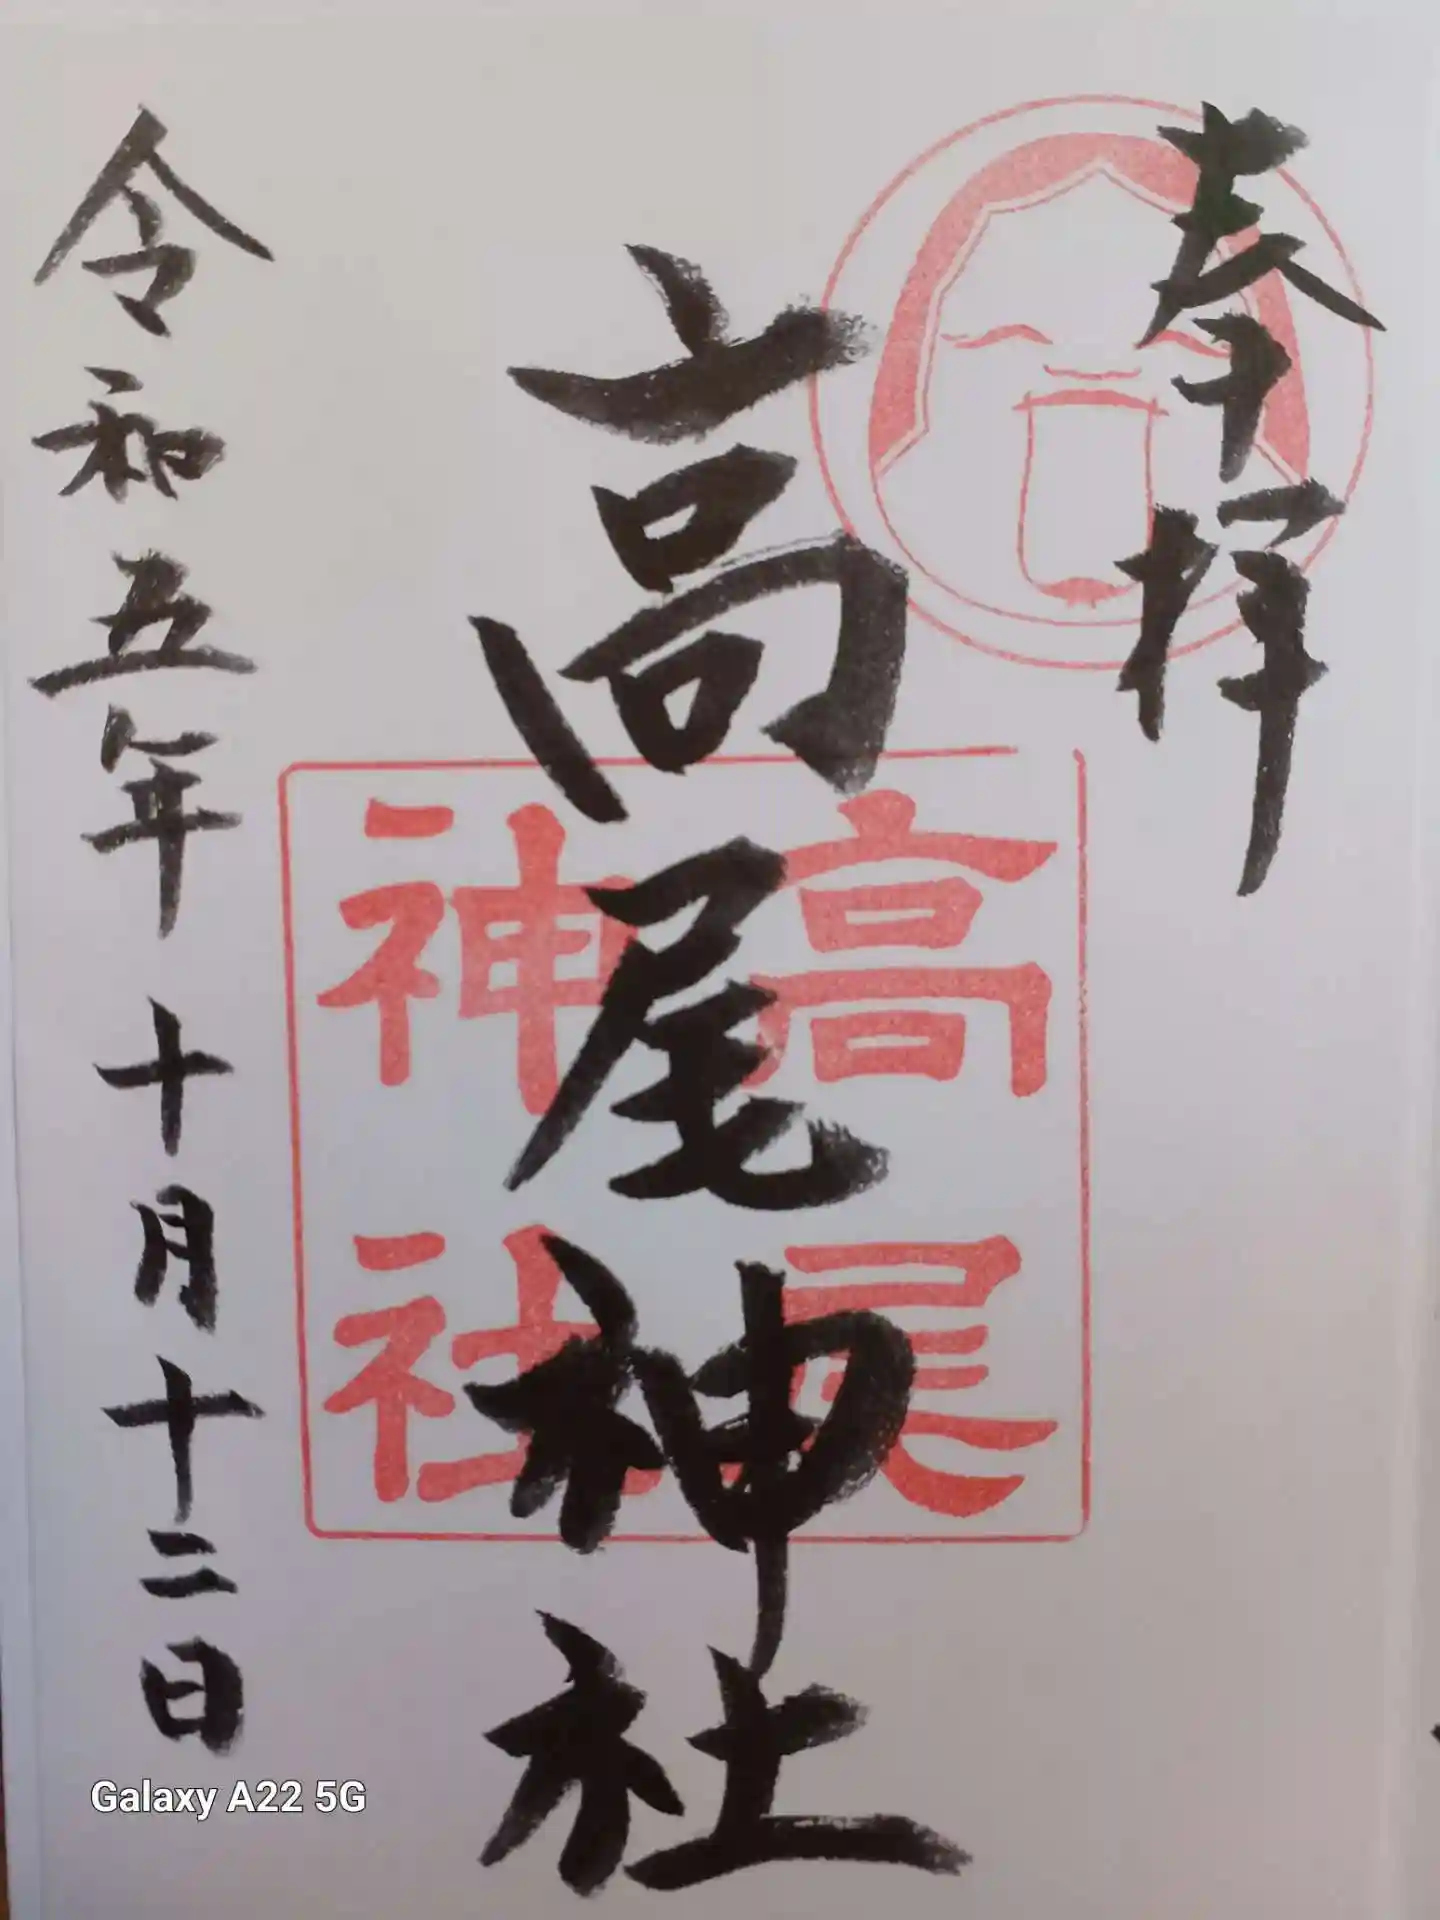 奉拝
高尾神社
高尾
神社
令和五年十月十二日
Galaxy A22 5G